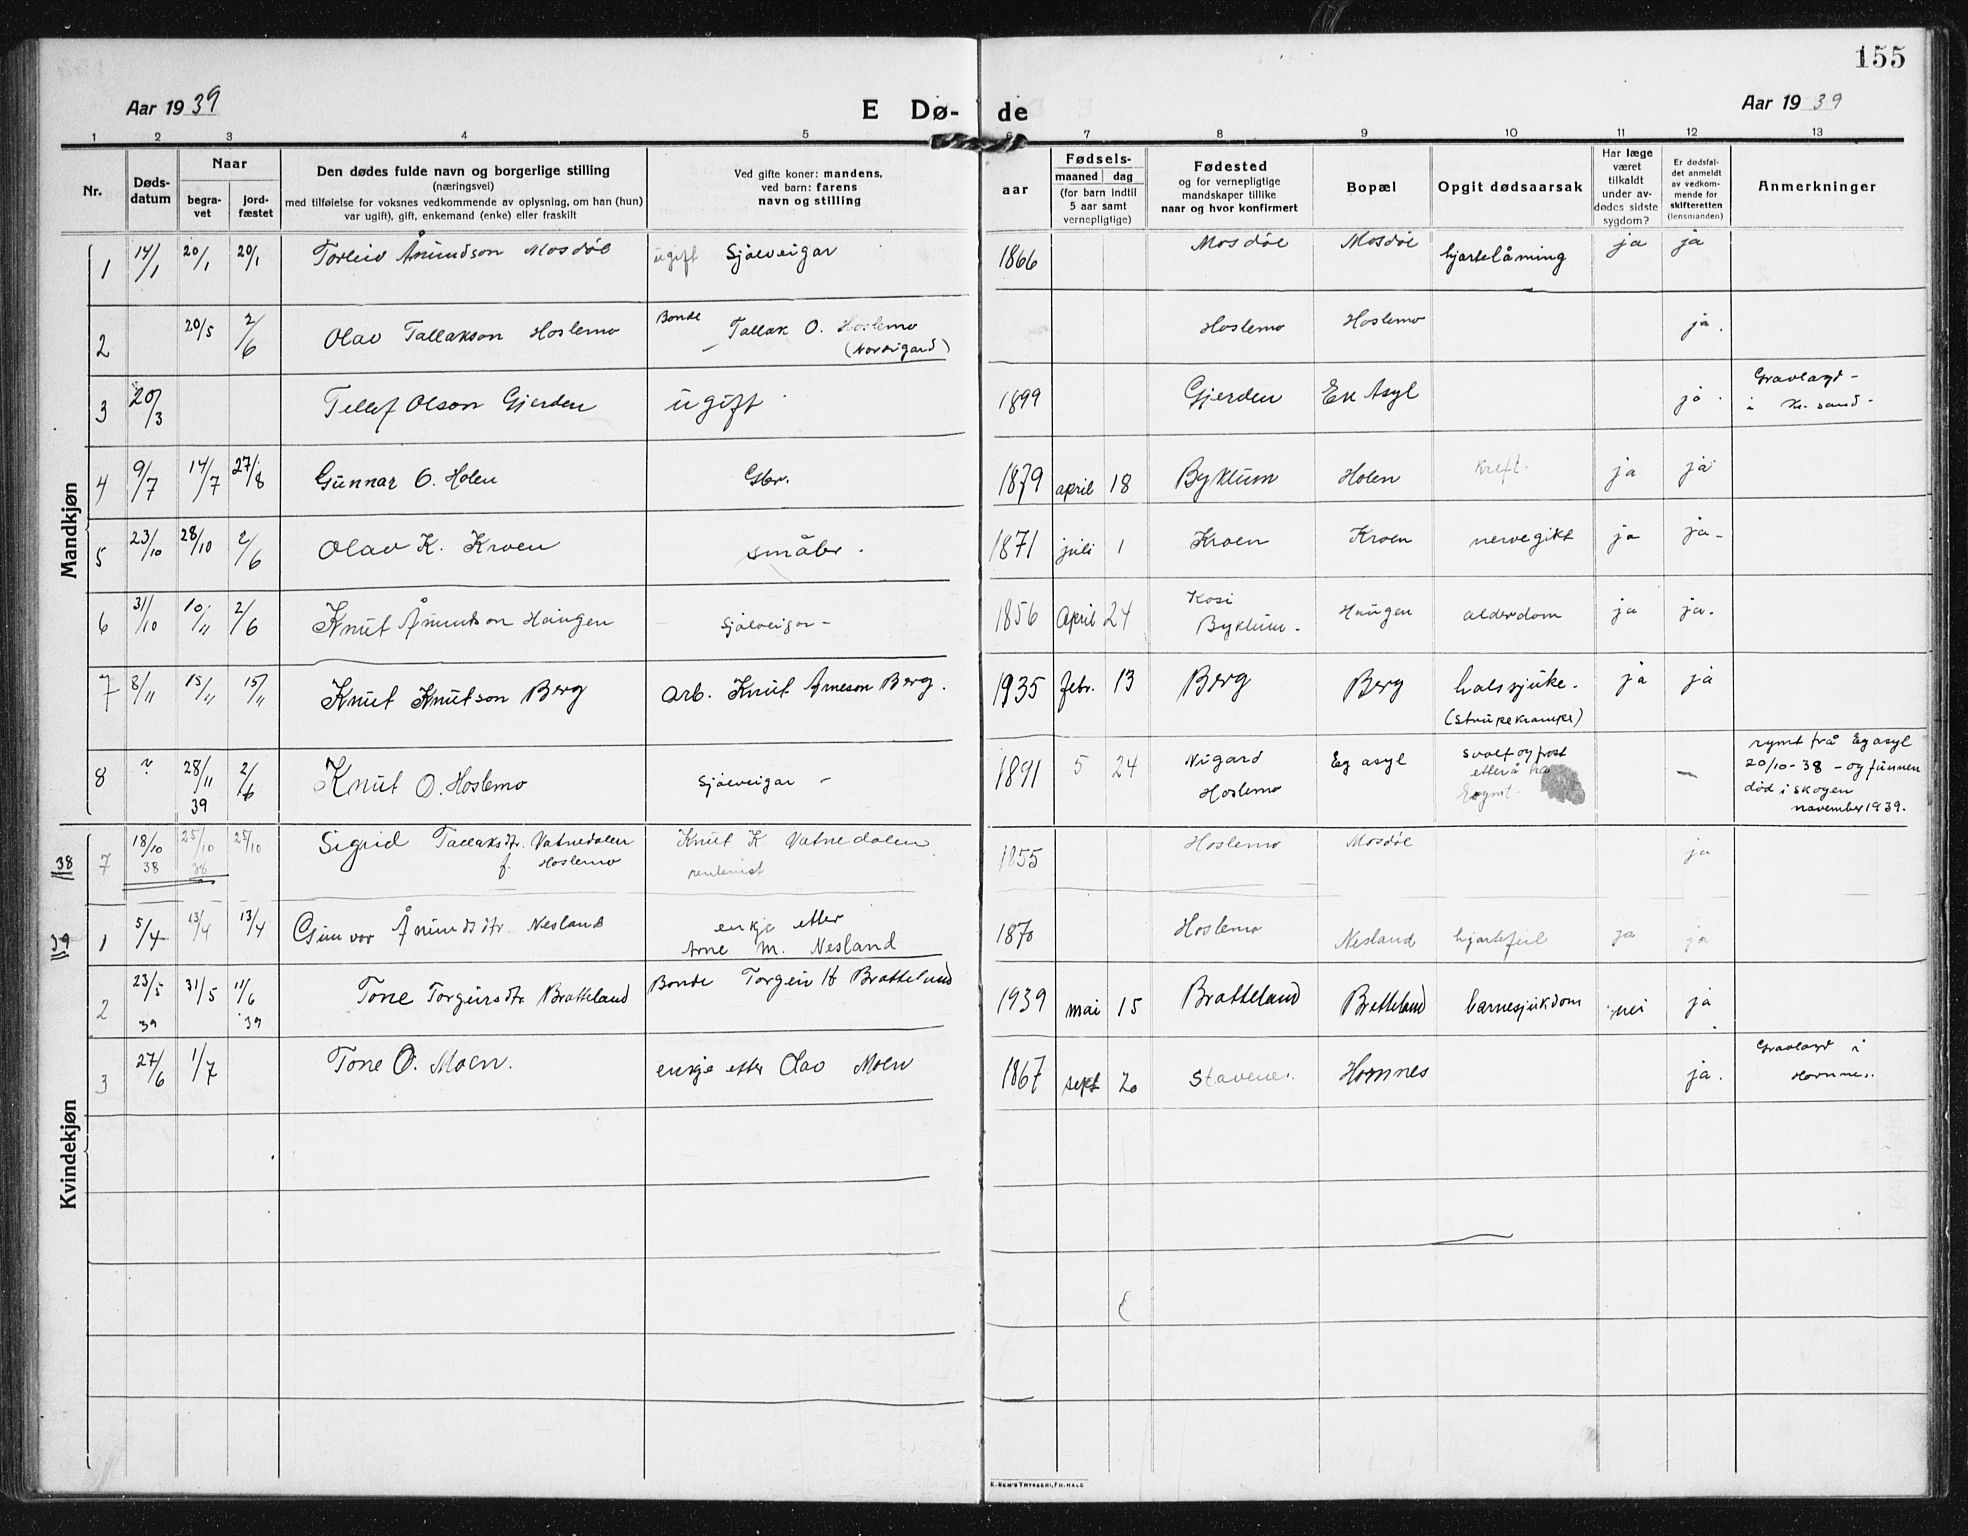 155
Aar 1939 E Dø- de Aar 1939
1 2 3 4 5 6 7 8 9 10 11 12 13
Nr.
Døds-
datum
Naar
begra-
vet
jord-
fæstet
Den dødes fulde navn og borgerlige stilling
(næringsvei)
med tilføielse for voksnes vedkommende av oplysning, om han (hun)
var ugift), gift, enkemand (enke) eller fraskilt
Ved gifte koner: mandens,
ved barn: farens
navn og stilling
aar
Fødsels-
maaned dag
(for barn indtil
5 aar samt
vernepligtige)
Fødested
og for vernepligtige
mandskaper tillike
naar og hvor konfirmert
Bopæl
Opgit dødsaarsak
Har læge
været
tilkaldt
under av-
dødes sidste
sygdom?
Er dødsfal-
det anmeldt
av vedkom-
mende for
skifteretten
(lensmanden)
Anmerkninger
Mandkjøn
1 14/1 20/1 20/1 Torleiv Ånundson Mosdøl ugift Sjølveigar 1866 Mosdøl Mosdøl hjartelåming ja ja
2 20/5 2/6 Olav Tallakson Hoslemo Bonde Tallak O. Hoslemo Hoslemo Hoslemo ja.
(Nordigard)
3 20/3 Tellef Olson Gjerden ugift 1899 Gjerden Eg Asyl ja. Gravlagd -
i Kr. sand -
4 9/7 14/7 27/8 Gunnar O. Holen Gbr. 1879 april 18 Byklum Holen kreft. ja ja
5 23/10 28/10 2/6 Olav K. Kroen småbr. 1871 juli 1 Kroen Kroen nervegikt ja ja-
6 31/10 10/11 2/6 Knut Ånundson Haugen Sjølveigar - 1856 April 24 Kosi
Byklum - Haugen alderdom ja ja.
7 8/11 15/11 15/11 Knut Knutson Berg arb. Knut Arneson Berg. 1935 febr. 13 Berg Berg halssjuke. ja ja
(strupekrampe)
8 ? 28/11 39 2/6 Knut O. Hoslemo Sjølveigar - 1891 5 24 Nigard
Hoslemo Eg asyl svolt og frost
etter å ha
rymt - rymt frå Eg asyl
20/10-38 - og funnen
død i skogen
november 1939.
Kvindekjøn
38
7 18/10 38 25/10 38 25/10 Sigrid Tallaksdtr. Vatnedalen Knut K Vatnedalen 1855 Hoslemo Mosdøl ja
f. Hoslemo
39
1 5/4 13/4 13/4 Gunvor Ånundsdtr. Nesland enkje etter
Arne M. Nesland 1870 Hoslemo Nesland hjartefeil ja ja
2 23/5 39 31/5 11/6 39 Tone Torgeirsdtr. Bratteland Bonde Torgeir K Bratteland 1939 mai 15 Bratteland Bratteland barnesjukdom nei ja
3 27/6 1/7 Tone O. Moen. enkje etter Olav Moen 1867 sept 20 Stavenes. Hornnes ja. Gravlagd i
Hornnes.
E. SEM'S TRYKKERI, FR.HALD